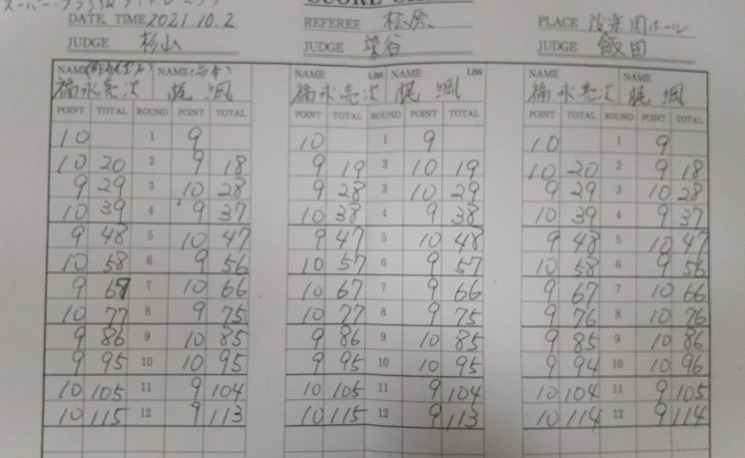 DATE, TIME 2021.10.2 REFEREE PLACE 後楽園ホール
JUDGE 杉山 JUDGE 染谷 JUDGE 飯田
NAME NAME NAME LBS NAME LBS NAME NAME
福永亮次 梶 颯 福永亮次 梶 颯 福永亮次 梶 颯
POINT TOTAL ROUND POINT TOTAL POINT TOTAL ROUND POINT TOTAL POINT TOTAL ROUND POINT TOTAL
10 1 9 10 1 9 10 1 9
10 20 2 9 18 9 19 2 10 19 10 20 2 9 18
9 29 3 10 28 9 28 3 10 29 9 29 3 10 28
10 39 4 9 37 10 38 4 9 38 10 39 4 9 37
9 48 5 10 47 9 47 5 10 48 9 48 5 10 47
10 58 6 9 56 10 57 6 9 57 10 58 6 9 56
9 67 7 10 66 10 67 7 9 66 9 67 7 10 66
10 77 8 9 75 10 77 8 9 75 9 76 8 10 76
9 86 9 10 85 9 86 9 10 85 9 85 9 10 86
9 95 10 10 95 9 95 10 10 95 9 94 10 10 96
10 105 11 9 104 10 105 11 9 104 10 104 11 9 105
10 115 12 9 113 10 115 12 9 113 10 114 12 9 114